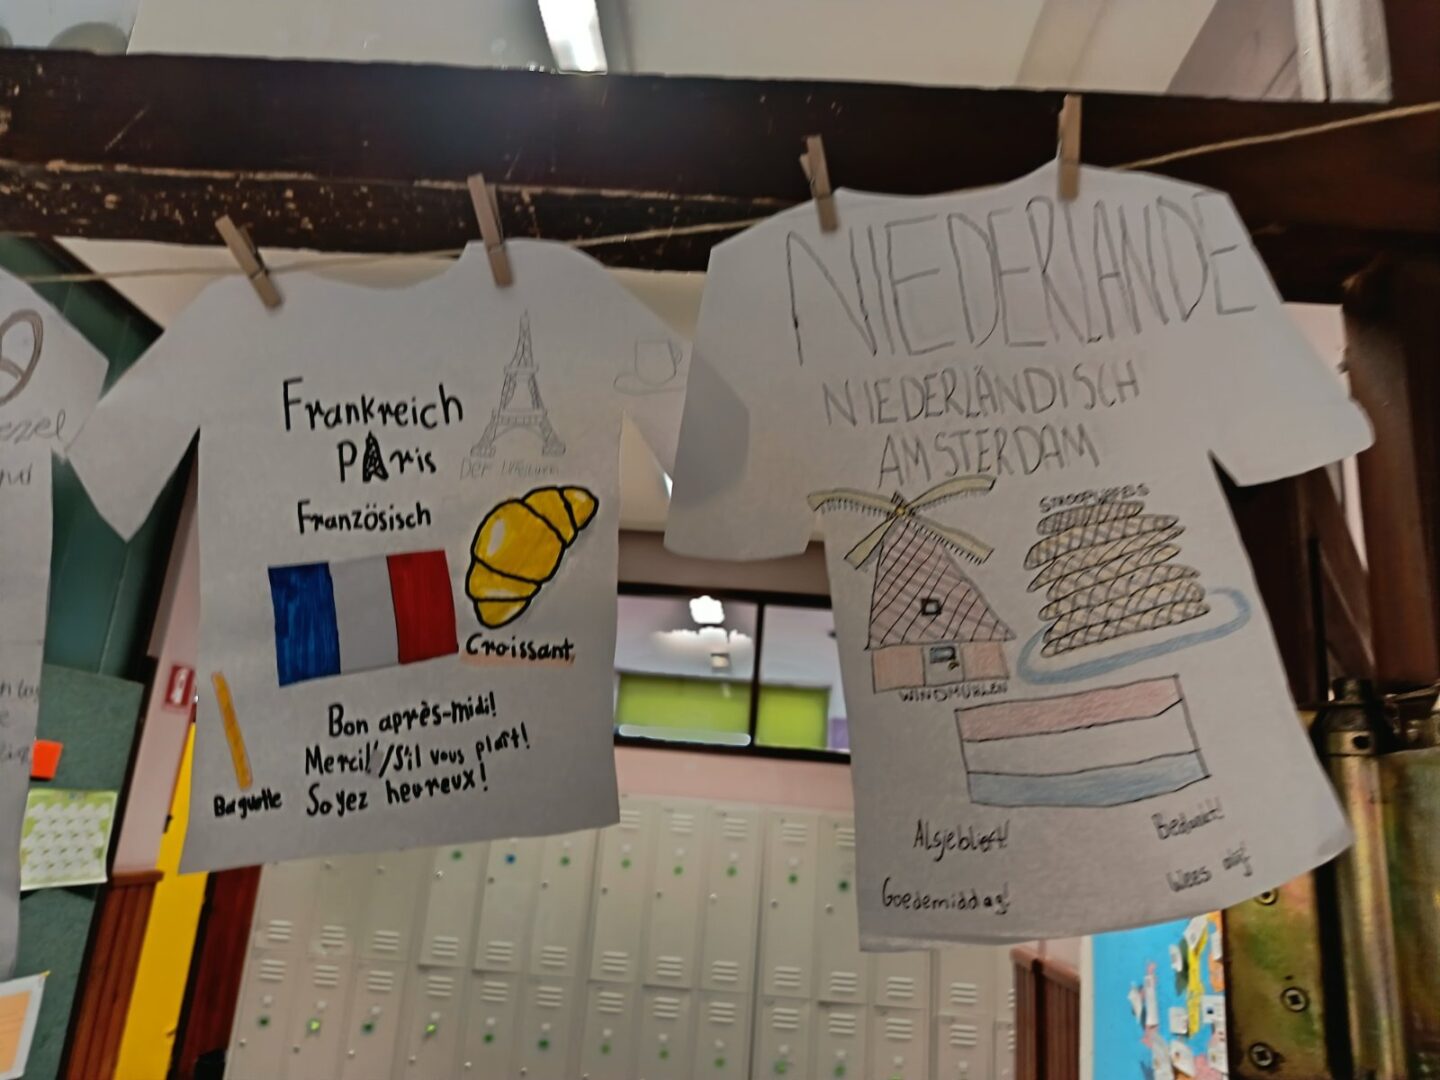 Frankreich
Paris
Französisch
Croissant
Baguette
Bon après-midi!
Merci!/S'il vous plaît!
Soyez heureux!
NIEDERLANDE
NIEDERLÄNDISCH
AMSTERDAM
STROOPWAFELS
WINDMÜHLEN
Alsjeblieft!
Bedankt!
Goedemiddag!
Wees blij!